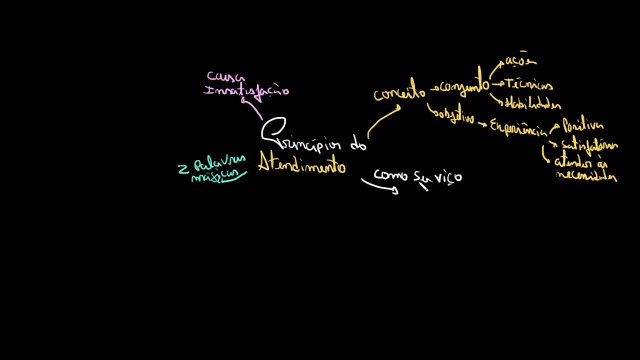 causa
Insatisfação
Princípios do
Atendimento
2 palavras
mágicas
conceito
conjunto
ações
Técnicas
Habilidades
objetivo
Experiência
Positiva
satisfatória
atender às
necessidades
como serviço